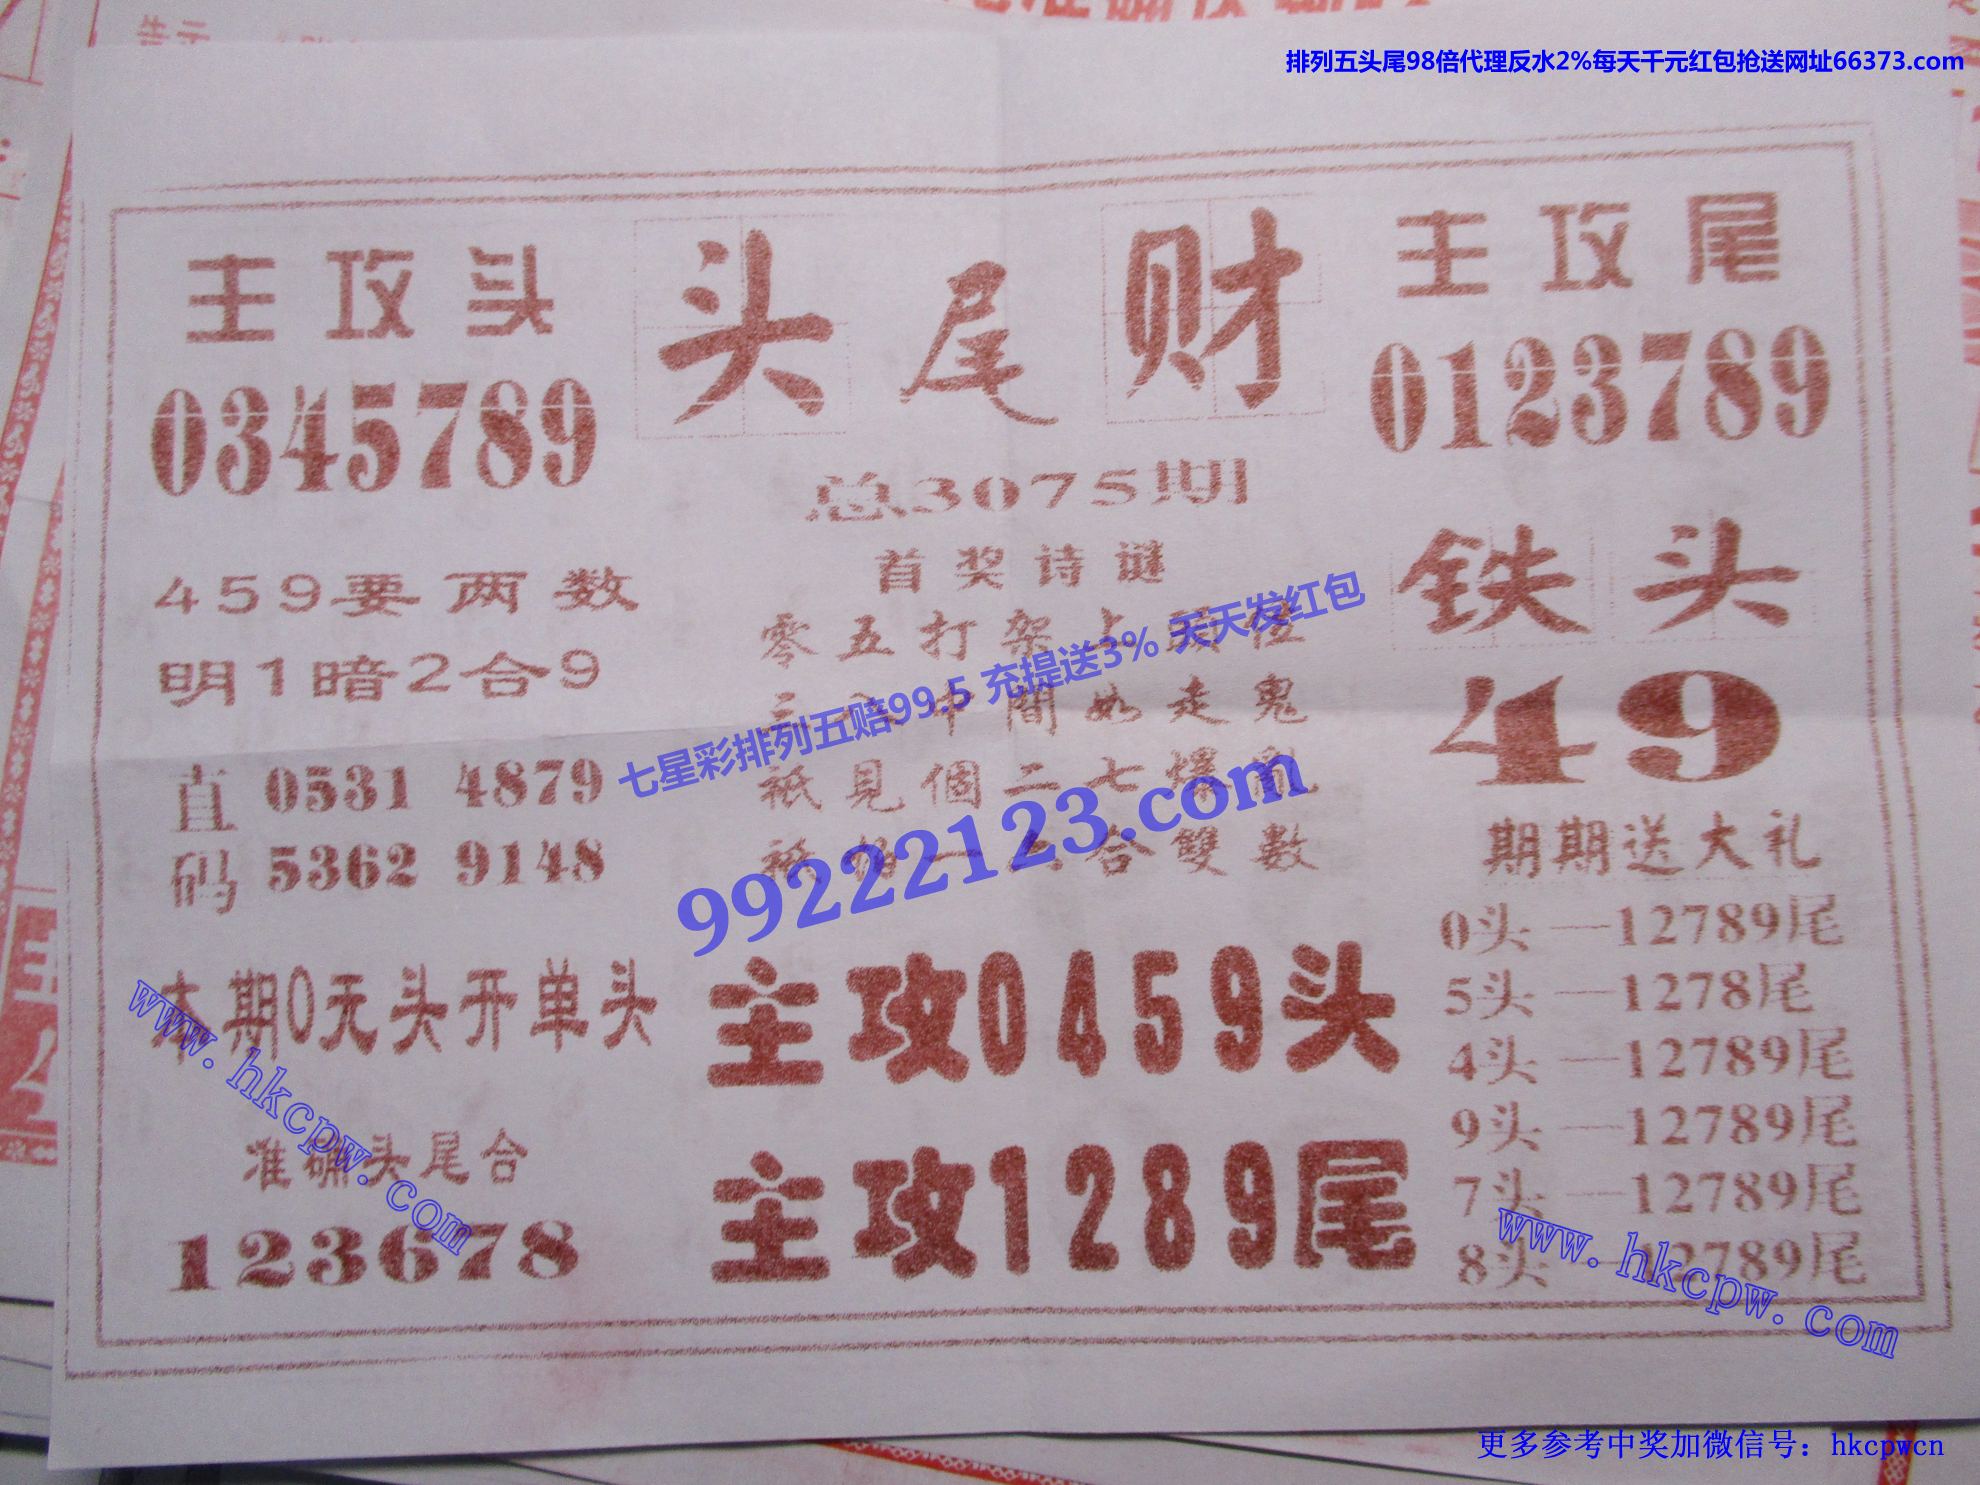 排列五头尾98倍代理反水2%每天千元红包抢送网址66373.com
主攻头
0345789
头尾财
主攻尾
0123789
总3075期
首奖诗谜
零五打架上頭位
間如走鬼
祗見個二七爆亂
合雙數
七星彩排列五赔99.5 充提送3% 天天发红包
99222123.com
459要两数
明1暗2合9
直码
0531 4879
5362 9148
铁头
49
期期送大礼
0头—12789尾
5头—1278尾
4头—12789尾
9头—12789尾
7头—12789尾
8头—12789尾
本期0无头开单头
准确头尾合
123678
主攻0459头
主攻1289尾
www.hkcpw.com
www.hkcpw.com
更多参考中奖加微信号：hkcpwcn